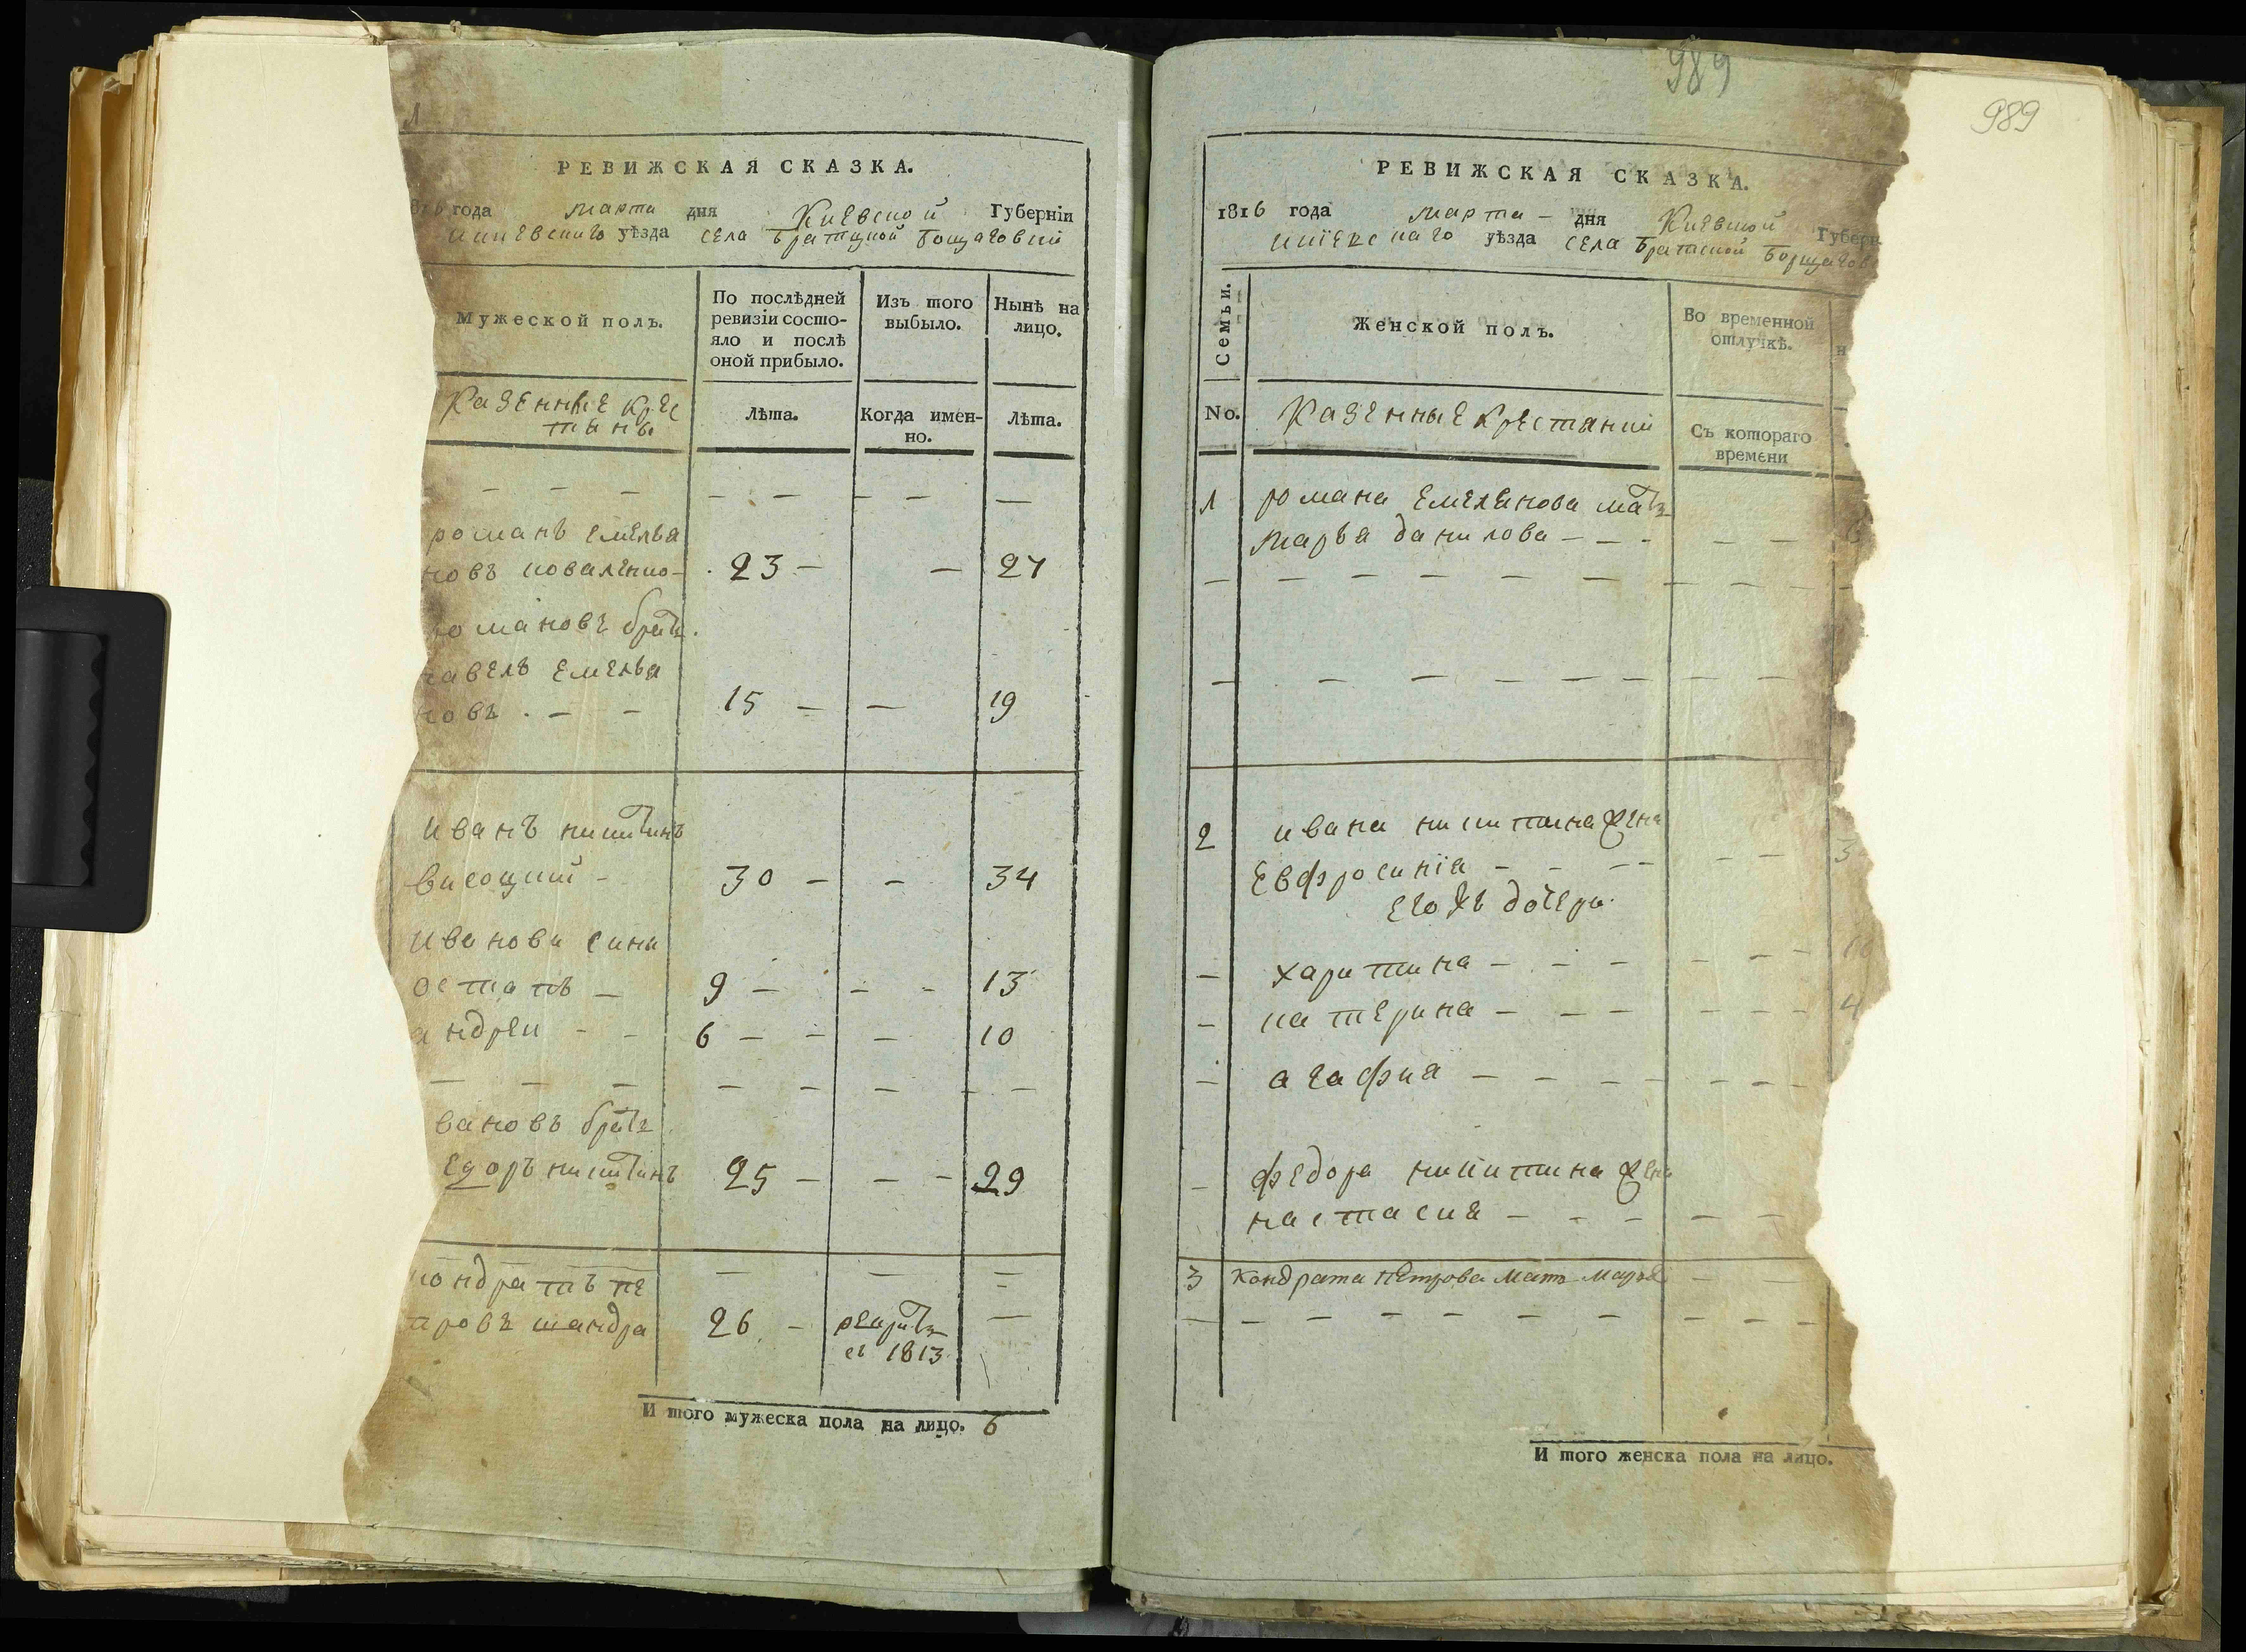 РЕВИЖСКАЯ СКАЗКА.
года марта дня Киевской Губерніи
уѣзда села Братцкой Бощаговки
Мужеской полъ.
По послѣдней ревизіи состояло и послѣ оной прибыло.
Изъ того выбыло.
Нынѣ на лицо.
Казенные крес
тяне
Лѣта.
Когда именно.
Лѣта.
романъ Емелья
новъ коваленко 23 27
романовъ братъ
павелъ Емелья
новъ 15 19
Иванъ никитинъ
висоцкий 30 34
Иванови сини
остапъ 9 13
андреи 6 10
вановъ братъ
едоръ никитинъ 25 29
кондратъ пе
тровъ шандра 26 рекрутъ
въ 1813
И того мужеска пола на лицо. 6
989
989
РЕВИЖСКАЯ СКАЗКА.
1816 года марта дня Киевской Губерн
киевскаго уѣзда села Братской Борщагов
Семьи.
Женской полъ.
Во временной отлучкѣ.
Н
No.
Казенные крестянки
Съ котораго времени
1 романа Емелянова мать
марья данилова
2 ивана никитина жена
Евфросинія
его жъ дочери
харитина
катерина 4
агафия
федора никитина жена
настасия
3 Кондрата Петрова мать марья
И того женска пола на лицо.